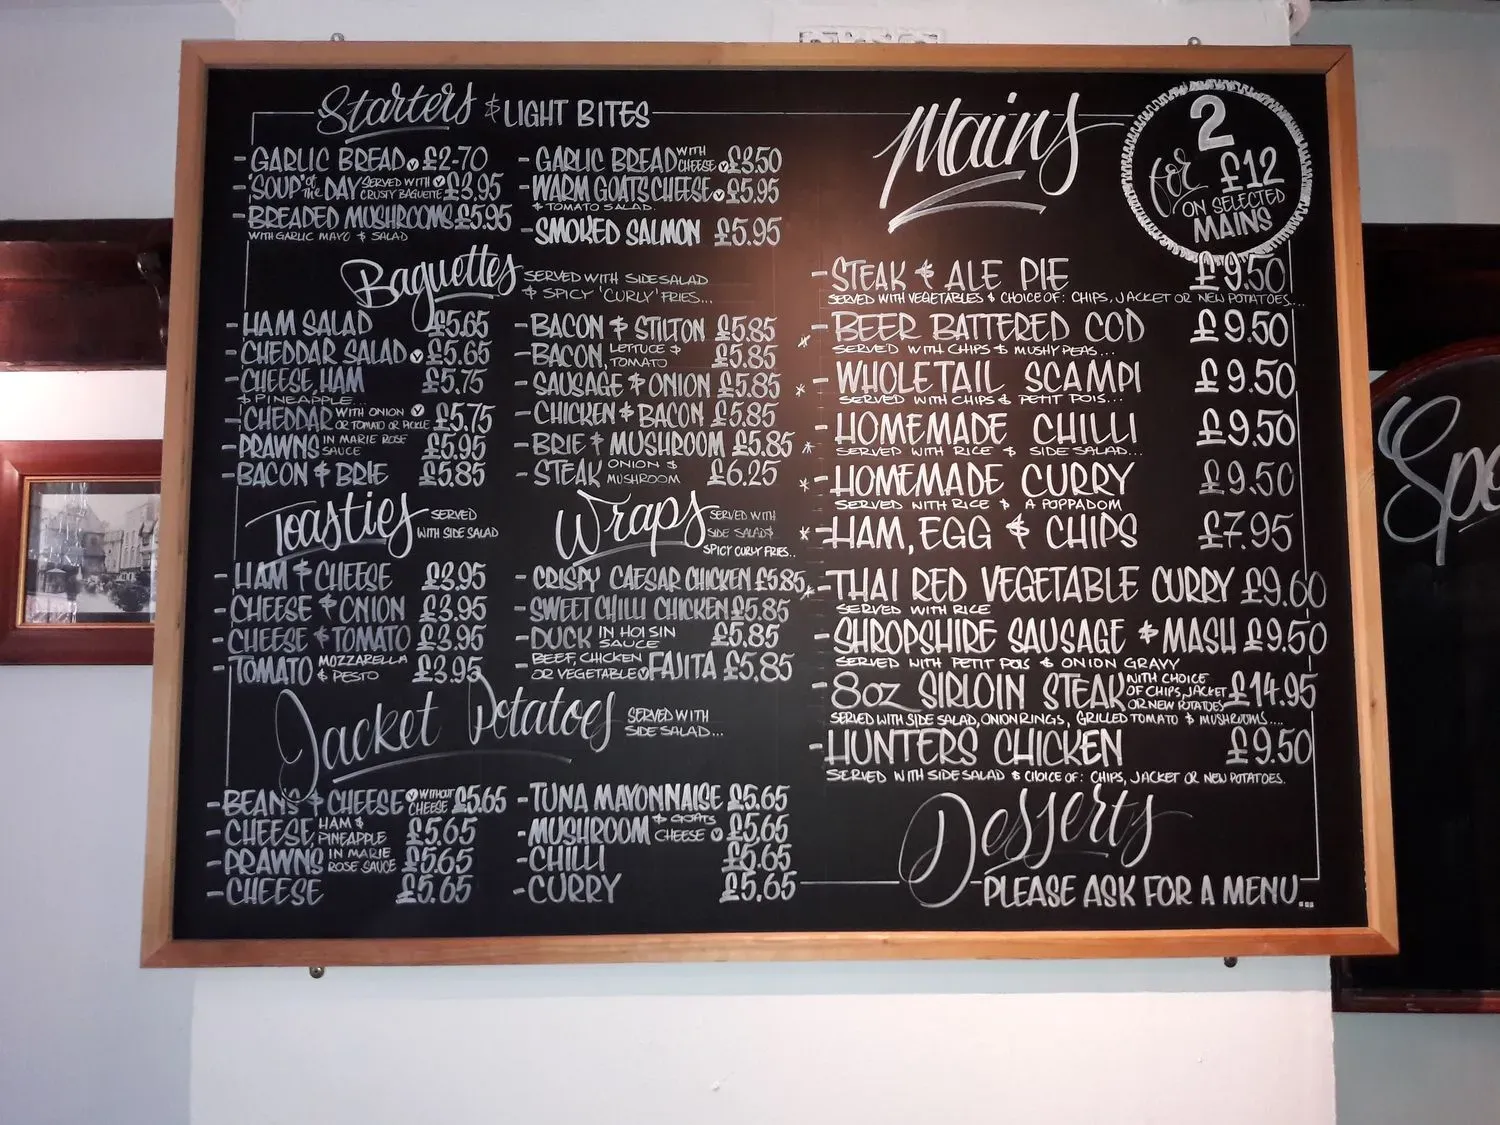 Starters & LIGHT BITES
- GARLIC BREAD V £2-70
- 'SOUP' of the DAY SERVED WITH V CRUSTY BAGUETTE £3.95
- BREADED MUSHROOMS £5.95
WITH GARLIC MAYO & SALAD
- GARLIC BREAD WITH CHEESE V £3.50
- WARM GOATS CHEESE V £5.95
& TOMATO SALAD.
- SMOKED SALMON £5.95
Baguettes SERVED WITH SIDE SALAD
& SPICY 'CURLY' FRIES...
- HAM SALAD £5.65
- CHEDDAR SALAD V £5.65
- CHEESE, HAM £5.75
& PINEAPPLE...
- CHEDDAR WITH ONION V OR TOMATO OR PICKLE £5.75
- PRAWNS IN MARIE ROSE SAUCE £5.95
- BACON & BRIE £5.85
- BACON & STILTON £5.85
- BACON, LETTUCE & TOMATO £5.85
- SAUSAGE & ONION £5.85
- CHICKEN & BACON £5.85
- BRIE & MUSHROOM £5.85
- STEAK ONION & MUSHROOM £6.25
Toasties SERVED
WITH SIDE SALAD
- HAM & CHEESE £3.95
- CHEESE & ONION £3.95
- CHEESE & TOMATO £3.95
- TOMATO MOZZARELLA & PESTO £3.95
Wraps SERVED WITH
SIDE SALAD &
SPICY CURLY FRIES..
- CRISPY CAESAR CHICKEN £5.85
- SWEET CHILLI CHICKEN £5.85
- DUCK IN HOISIN SAUCE £5.85
- BEEF, CHICKEN OR VEGETABLE V FAJITA £5.85
Jacket Potatoes SERVED WITH
SIDE SALAD...
- BEANS & CHEESE V WITHOUT CHEESE £5.65
- CHEESE, HAM & PINEAPPLE £5.65
- PRAWNS IN MARIE ROSE SAUCE £5.65
- CHEESE £5.65
- TUNA MAYONNAISE £5.65
- MUSHROOM & GOATS CHEESE V £5.65
- CHILLI £5.65
- CURRY £5.65
Mains
2
for £12
ON SELECTED
MAINS
- STEAK & ALE PIE £9.50
SERVED WITH VEGETABLES & CHOICE OF: CHIPS, JACKET OR NEW POTATOES...
* - BEER BATTERED COD £9.50
SERVED WITH CHIPS & MUSHY PEAS...
* - WHOLETAIL SCAMPI £9.50
SERVED WITH CHIPS & PETIT POIS...
* - HOMEMADE CHILLI £9.50
SERVED WITH RICE & SIDE SALAD...
* - HOMEMADE CURRY £9.50
SERVED WITH RICE & A POPPADOM
* - HAM, EGG & CHIPS £7.95
* - THAI RED VEGETABLE CURRY £9.60
SERVED WITH RICE
- SHROPSHIRE SAUSAGE & MASH £9.50
SERVED WITH PETIT POIS & ONION GRAVY
- 8oz SIRLOIN STEAK WITH CHOICE OF CHIPS, JACKET OR NEW POTATOES £14.95
SERVED WITH SIDE SALAD, ONION RINGS, GRILLED TOMATO & MUSHROOMS....
- HUNTERS CHICKEN £9.50
SERVED WITH SIDE SALAD & CHOICE OF: CHIPS, JACKET OR NEW POTATOES.
Desserts
PLEASE ASK FOR A MENU...